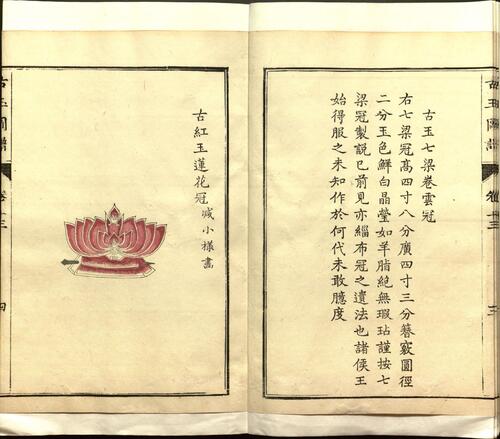 古玉圖譜
卷十三
古玉七梁卷雲冠
右七梁冠高四寸八分廣四寸三分簪竅圓徑
二分玉色鮮白晶瑩如羊脂絕無瑕玷謹按七
梁冠製説已前見亦緇布冠之遺法也諸侯王
始得服之未知作於何代未敢臆度
古紅玉蓮花冠減小樣畫
古玉圖譜
卷十三
四